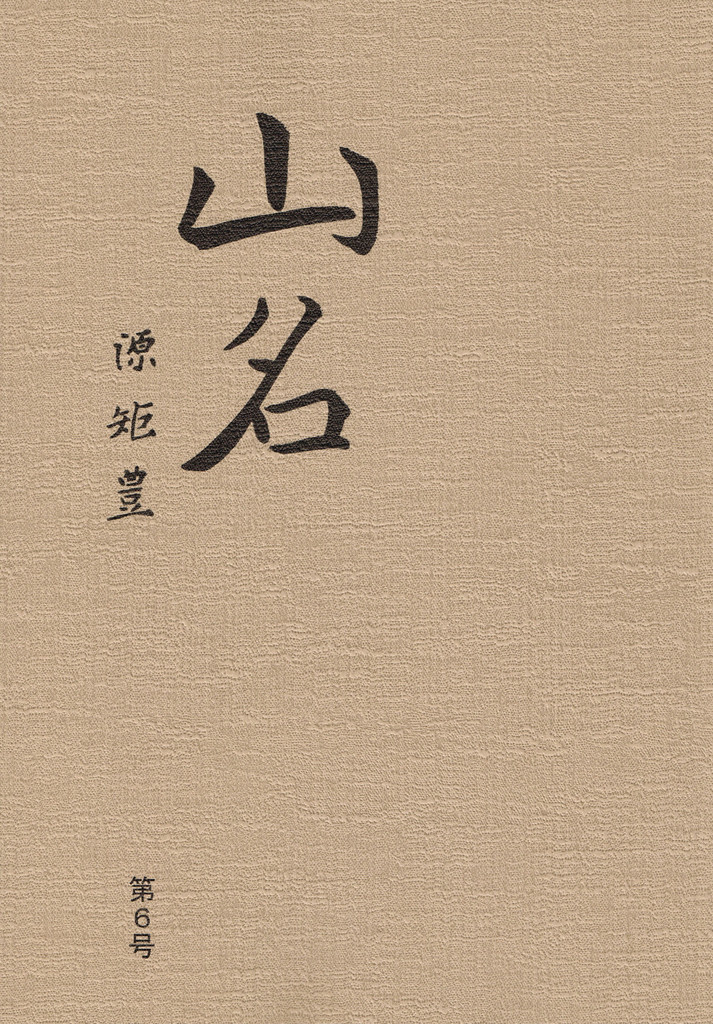 山名
源矩豊
第6号